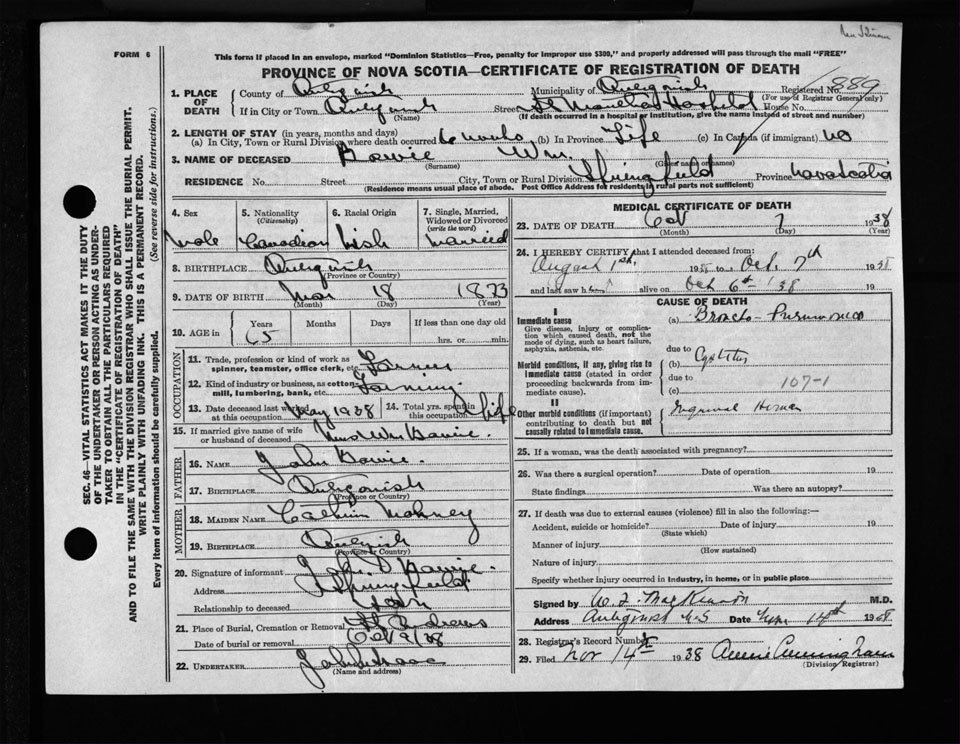 FORM 6
This form if placed in an envelope, marked "Dominion Statistics—Free, penalty for improper use $300," and properly addressed will pass through the mail "FREE"
PROVINCE OF NOVA SCOTIA—CERTIFICATE OF REGISTRATION OF DEATH
SEC. 46—VITAL STATISTICS ACT MAKES IT THE DUTY
OF THE UNDERTAKER OR PERSON ACTING AS UNDER-
TAKER TO OBTAIN ALL THE PARTICULARS REQUIRED
IN THE "CERTIFICATE OF REGISTRATION OF DEATH"
AND TO FILE THE SAME WITH THE DIVISION REGISTRAR WHO SHALL ISSUE THE BURIAL PERMIT.
WRITE PLAINLY WITH UNFADING INK. THIS IS A PERMANENT RECORD.
Every item of information should be carefully supplied. (See reverse side for instructions.)
1. PLACE OF DEATH
County of Antigonish Municipality of Antigonish Registered No. 889
(For use of Registrar General only)
If in City or Town Antigonish Street St Martha Hospital House No.
(Name) (If death occurred in a hospital or institution, give the name instead of street and number)
2. LENGTH OF STAY (in years, months and days)
(a) In City, Town or Rural Division where death occurred 6 weeks (b) In Province Life (c) In Canada (if immigrant) no
3. NAME OF DECEASED Bowie Wm
(Surname) (Given name or names)
RESIDENCE No. Street City, Town or Rural Division Springfield Province Nova Scotia
(Residence means usual place of abode. Post Office Address for residents in rural parts not sufficient)
4. Sex Male
5. Nationality (Citizenship) Canadian
6. Racial Origin Irish
7. Single, Married, Widowed or Divorced (write the word) Married
8. BIRTHPLACE Antigonish
(Province or Country)
9. DATE OF BIRTH Mar 18 1873
(Month) (Day) (Year)
10. AGE in Years Months Days If less than one day old
65 hrs. or min.
OCCUPATION
11. Trade, profession or kind of work as spinner, teamster, office clerk, etc. Farmer
12. Kind of industry or business, as cotton mill, lumbering, bank, etc. Farming
13. Date deceased last worked at this occupation May 1938
14. Total yrs. spent in this occupation life
15. If married give name of wife or husband of deceased Mrs Wm Bowie
FATHER
16. NAME John Bowie
17. BIRTHPLACE Antigonish
(Province or Country)
MOTHER
18. MAIDEN NAME
19. BIRTHPLACE Antigonish
(Province or Country)
20. Signature of informant John D Bowie
Address Springfield
Relationship to deceased
21. Place of Burial, Cremation or Removal St Andrews
Date of burial or removal Oct 9/38
22. UNDERTAKER
(Name and address)
MEDICAL CERTIFICATE OF DEATH
23. DATE OF DEATH Oct 7 1938
(Month) (Day) (Year)
24. I HEREBY CERTIFY that I attended deceased from:
August 1st, 1938 to Oct. 7th 1938
and last saw him alive on Oct 6th '38 19
CAUSE OF DEATH
I
Immediate cause
Give disease, injury or complication which caused death, not the mode of dying, such as heart failure, asphyxia, asthenia, etc.
(a) Broncho-Pneumonia
due to
Morbid conditions, if any, giving rise to immediate cause (stated in order proceeding backwards from immediate cause).
(b) Cystitis
due to
(c) 107-1
II
Other morbid conditions (if important) contributing to death but not causally related to immediate cause.
Inguinal Hernia
25. If a woman, was the death associated with pregnancy?
26. Was there a surgical operation? Date of operation 19
State findings Was there an autopsy?
27. If death was due to external causes (violence) fill in also the following:—
Accident, suicide or homicide? Date of injury 19
(State which)
Manner of injury
(How sustained)
Nature of injury
Specify whether injury occurred in industry, in home, or in public place
Signed by W. F. MacKinnon M.D.
Address Antigonish N.S Date 14th 1938
28. Registrar's Record Number
29. Filed Nov 14th 1938 Annie Cunningham
(Division Registrar)